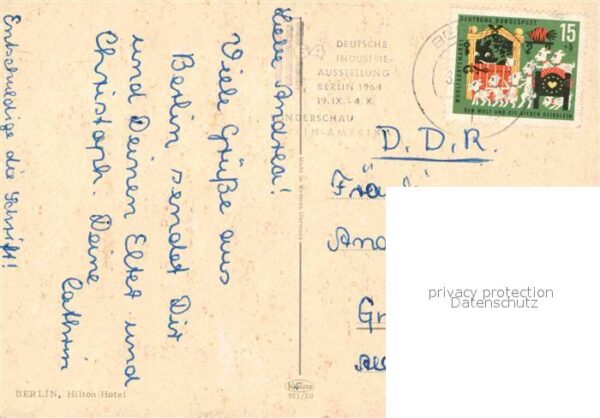 Liebe Andrea!
Viele Grüße aus
Berlin sendet Dir
und Deinen Eltern und
Christoph. Deine
Cathrin
Entschuldige die Schrift!
BERLIN, Hilton-Hotel
Made in Western Germany
KRÜGER
921/20
DEUTSCHE
INDUSTRIE-
AUSSTELLUNG
BERLIN 1964
19.IX.-4.X.
NDERSCHAU
IN-AMERI
BE
DEUTSCHE BUNDESPOST
15
+5
WOHLFAHRTSMARKE
DER WOLF UND DIE SIEBEN GEISSLEIN
D.D.R.
Fräul
And
Gr
privacy protection
Datenschutz